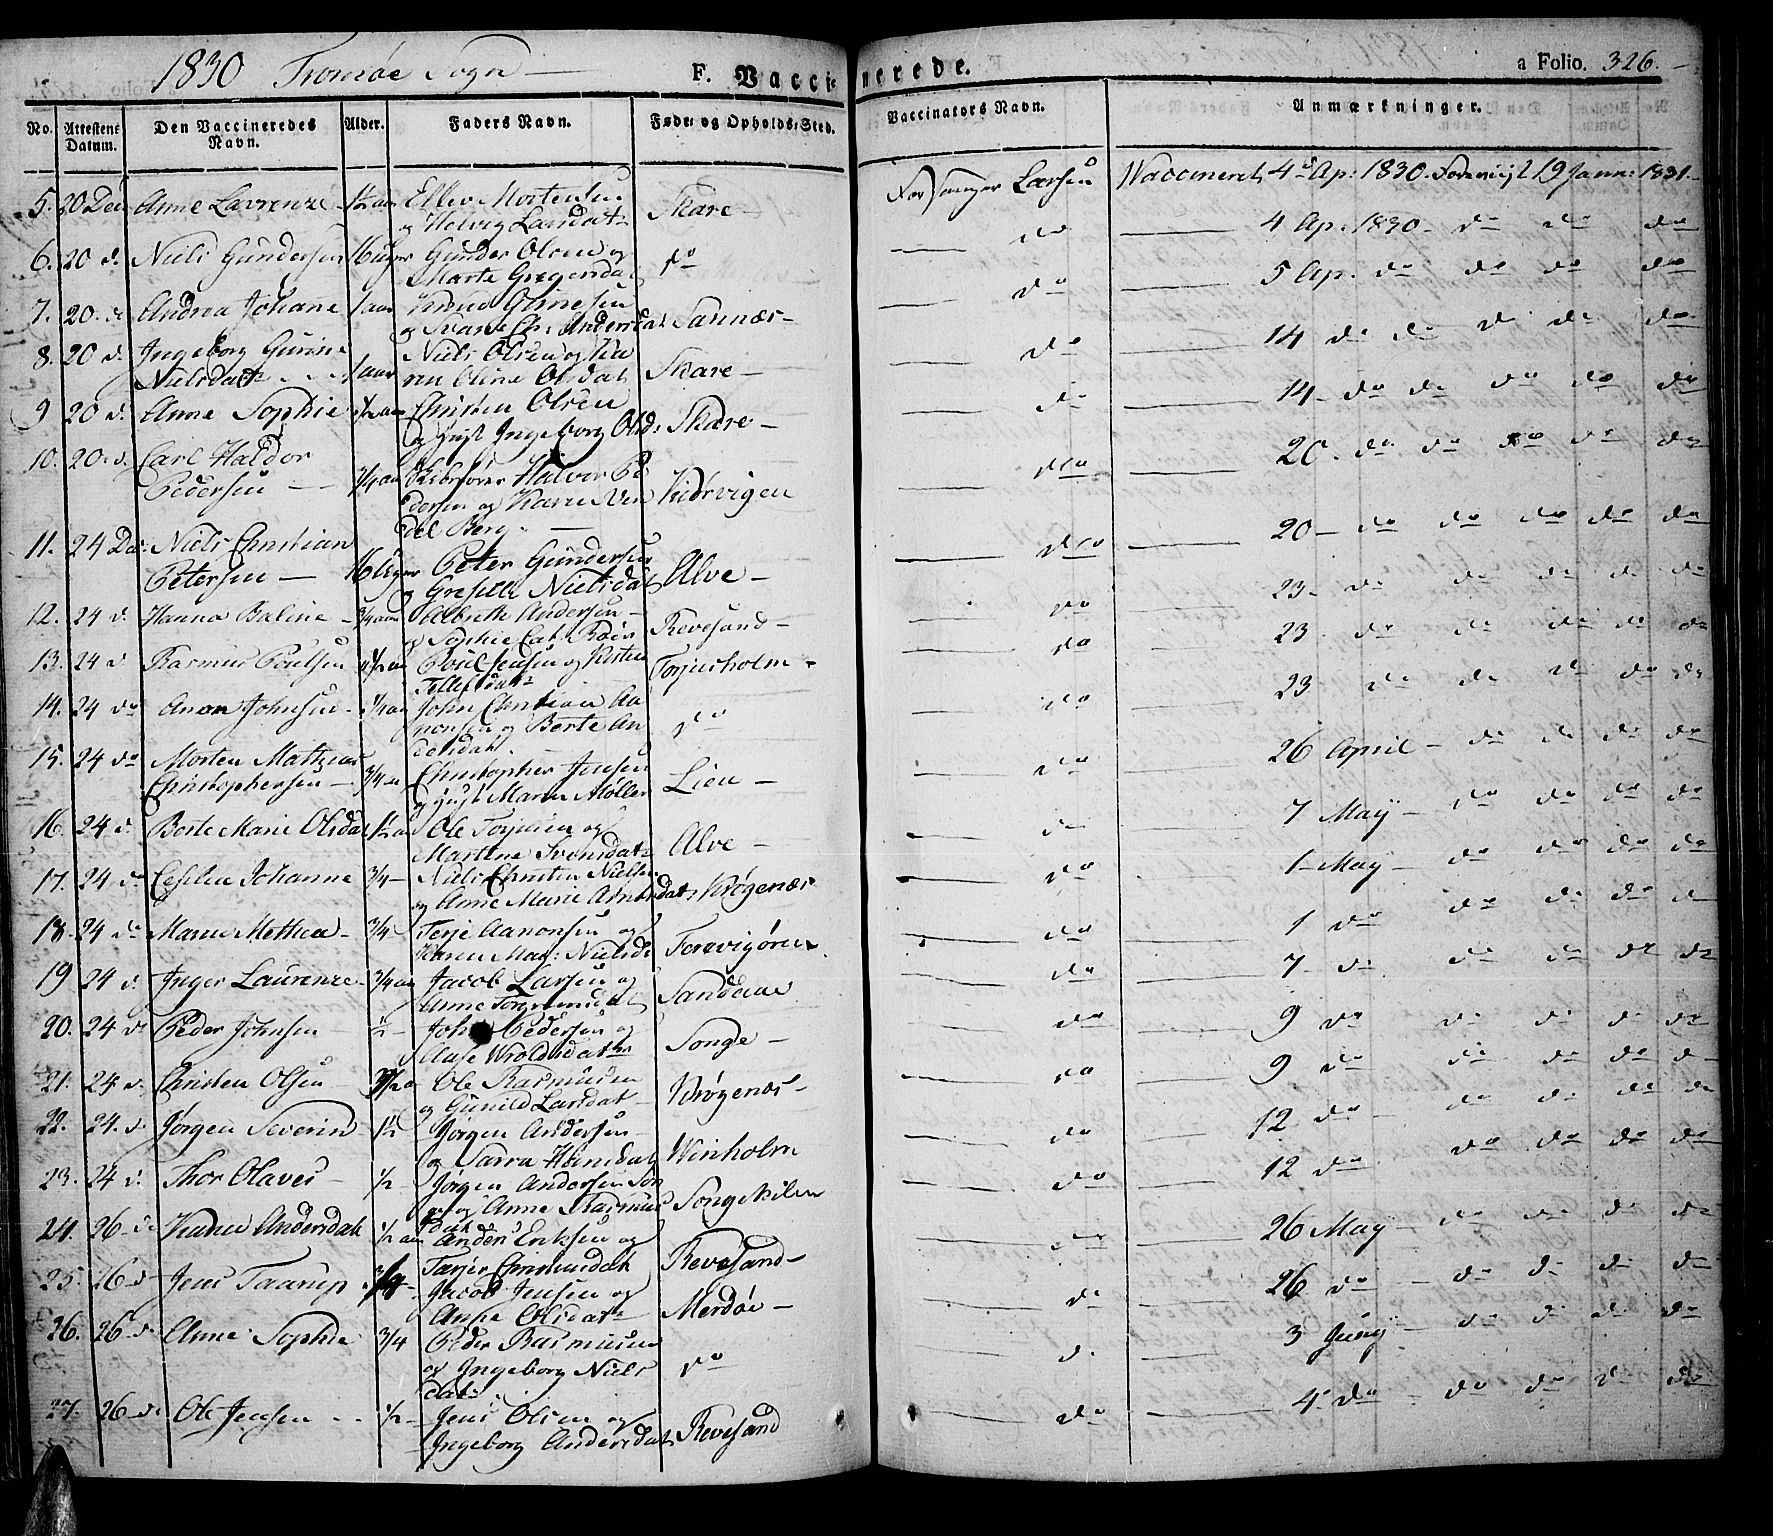 1830 Tromøe Sogn — F. Vaccinerede. a Folio. 326.
No. Attestens Datum. Den Vaccineredes Navn. Alder. Faders Navn. Føde- og Opholds-Sted. Vaccinators Navn. Anmærkninger.
5. 20 Dec Anne Lavrenze 1/2 aar Ellev Mortensen Skare — Forsanger Larsen Vaccineret 4de Ap: 1830. Foreviist 19 Janu: 1831.
og Helvig Larsdatr
6. 20 d. Niels Gundersen 16 uger Gunder Olsen og do — do — 4 Ap. 1830 — do do do
Marte Gregersdat
7. 20. d. Andrea Johane 1 aar Knud Gunnesen Sannæs — do — 5 Ap. do do do do
og Svane Chr: Andersdat
8. 20 d. Ingeborg Gurine Niels Olsen og Ka Skare — do — 14 do do do do do
Nielsdatr 1 aar ren Oline Olsdat
9 20 d. Anne Sophie 1/2 aar Christen Olsen Skare — do — 14 — do do do do do
og Ingeborg Olsd:
10. 20 d. Carl Haldor
Pedersen — 3/4 aar Halvor Pe Kidrvigen — do — 20 — do do do do do
dersen og Karen Ven
del Berg. —
11. 24 Dec: Niels Christian Alve — do — 20 — do do do do do
Petersen — 16 Uger Peter Gundersen
og Nielsdat
12. 24 d. Hanna Baline 3/4 aar Andersen — Revesand — do — 23 — do do do do do
og Sophie Cat. Bois
13. 24 d Rasmus Poulsen 1 1/2 aar Poul Jensen og Kirsten Torjusholm — do — 23 do do do do do
Tellefsdatr
14. 24 do Anon Johnsen 3/4 aar John Christian Aa do — do — 23 do do do do do
nonsen og Berte An
dersdat.
15. 24 do Morten Mathias Christopher Jensen Lien — do — 26 April — do do do do
Christophersen — 3/4 aar og Maren Møller
16. 24 d. Berte Marie Olsdat 1/2 aar Ole Torjusen og Alve — do — 7 May do do do do
Martine Svensdatr
17. 24 do Cesilie Johanne 3/4 — Niels Christen Nielsen Krøgenæs — do — 1 — May — do do do do
og Anne Marie
18. 24 do Maren Mathea — 3/4 — Terje Aanonsen og Torevigøren — do — 1 do do do do do
Karen Mar: Nielsd:
19 24 d. Inger Laurenze — 3/4 aar Jacob Larsen og Sandaae — do — 7 — do do do do do
Anne
20. 24 do Peder Johnsen 1/2 — John Pedersen og Songe — do — 9 do do do do do
Aase Wroldsdatter
21. 24 d. Christen Olsen Ole Rasmusen Krøgenæs — do — 9 do do do do do
og Gunild Larsdat
22. 24. d. Jørgen Severin 1/2 Jørgen Andersen Winholm — do — 12 do do do do do
og Sarra Hansdat
23. 24 d. Thor Olaves — 1/2 — Jørgen Andersen Son Songekilen — do — 12 do do do do do
ge og Anne Rasmus
dat
24. 26 d. Karen Andersdat 1/2 aar Anders Eriksen og Revesand — do — 26 May — do do do do
Tarjer Christensdat
25. 26 d. Jens Taarup Jacob Jensen og Merdøe — do — 26 do — do do do do
Anne Olsdatr
26. 26 d. Anne Sophie 3/4 Peder Rasmusen do — d. — 3 Juny — do do do do
og Ingeborg Niels
dat.
27. 26 d. Ole Jensen 1/2 — Jens Olsen og Revesand — do — 4 do — do do do do
Ingeborg Andersdat